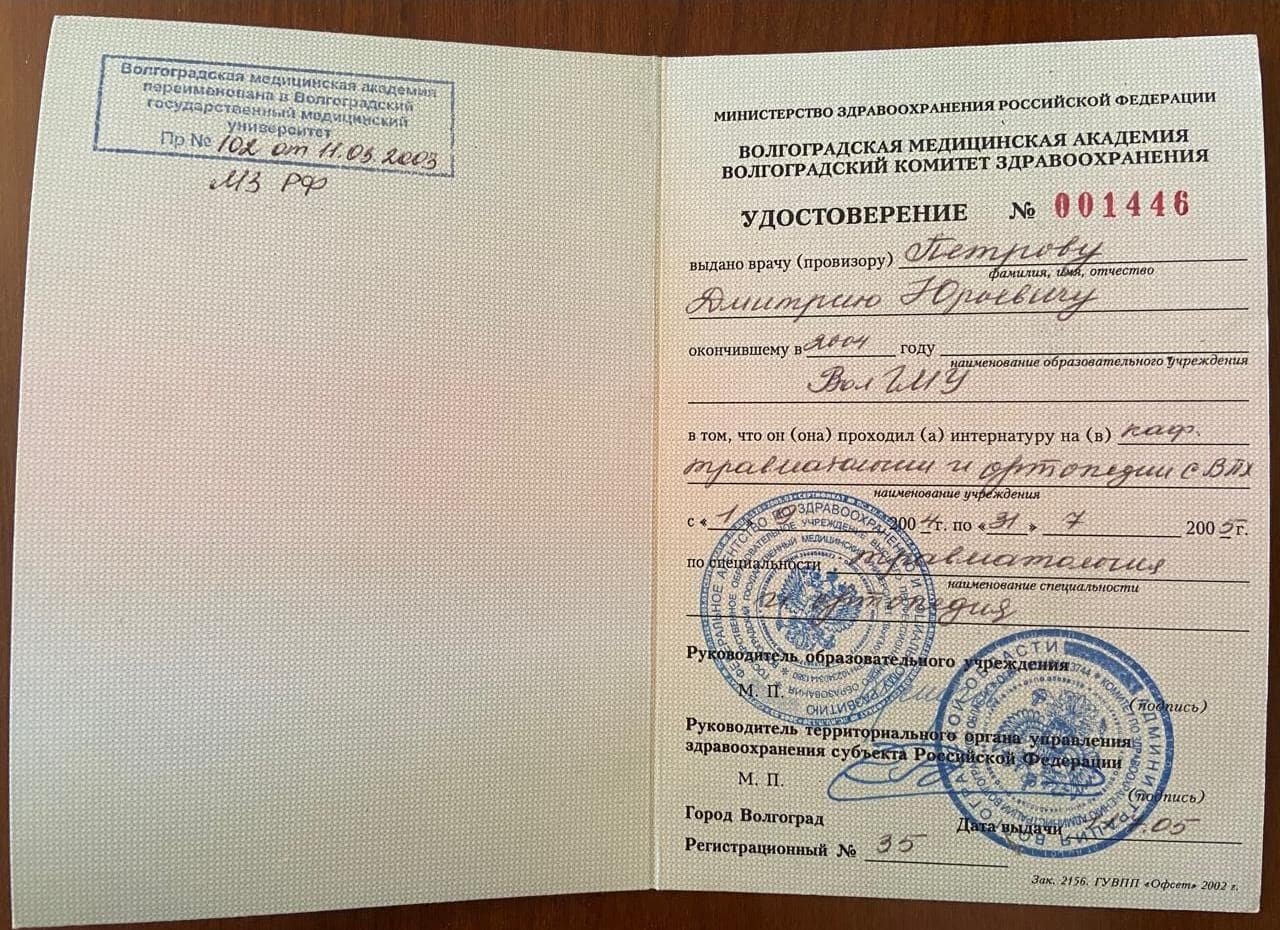 Волгоградская медицинская академия
переименована в Волгоградский
государственный медицинский
университет
Пр № 102 от 11.03.2003
МЗ РФ
МИНИСТЕРСТВО ЗДРАВООХРАНЕНИЯ РОССИЙСКОЙ ФЕДЕРАЦИИ
ВОЛГОГРАДСКАЯ МЕДИЦИНСКАЯ АКАДЕМИЯ
ВОЛГОГРАДСКИЙ КОМИТЕТ ЗДРАВООХРАНЕНИЯ
УДОСТОВЕРЕНИЕ № 001446
выдано врачу (провизору) Петрову
фамилия, имя, отчество
Дмитрию Юрьевичу
окончившему в 2004 году
наименование образовательного учреждения
ВолГМУ
в том, что он (она) проходил (а) интернатуру на (в) каф.
травматологии и ортопедии с ВПХ
наименование учреждения
с « 1 » 9 2004 г. по « 31 » 7 2005 г.
по специальности травматология
наименование специальности
и ортопедия
Руководитель образовательного учреждения
М. П. (подпись)
Руководитель территориального органа управления
здравоохранения субъекта Российской Федерации
М. П.
(подпись)
Город Волгоград Дата выдачи
Регистрационный № 35
Зак. 2156. ГУВПП «Офсет» 2002 г.